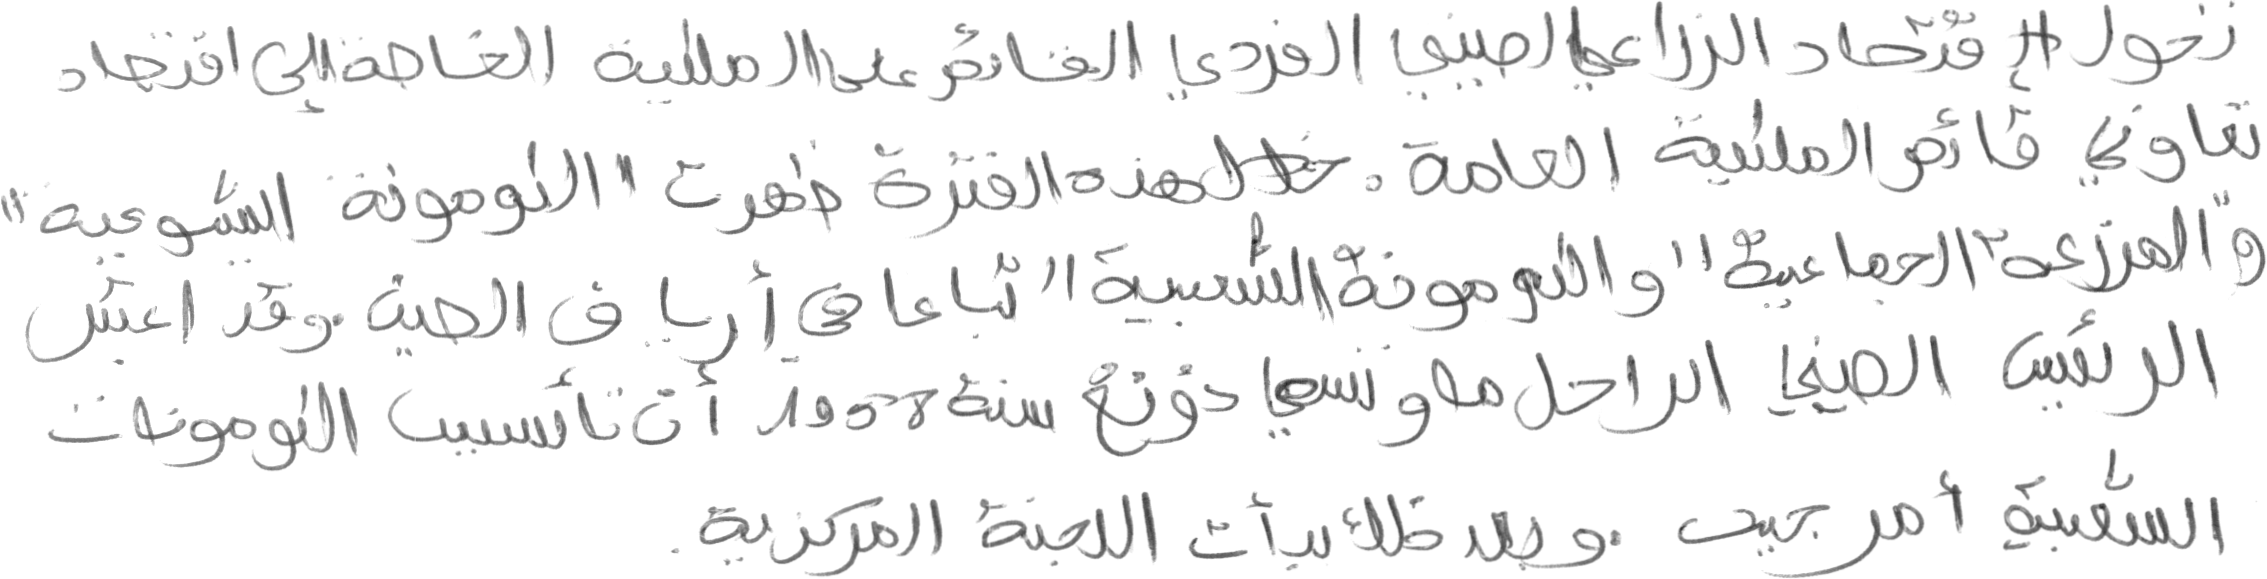 تحول الإقتصاد الزراعي الصيني الفردي القائم على الملكية الخاصة إلى اقتصاد
تعاوني قائم الملكية العامة. خلال هذه الفترة ظهرت "الكومونة الشيوعية"
و"المزرعة الجماعية" و"الكومونة الشعبية" تباعا في أرياف الصين. وقد اعتبر
الرئيس الصيني الراحل ماو تسي دونغ سنة 1958 أن تأسيس الكومونات
الشعبية أمر جيد. وبعد ذلك بدأت اللجنة المركزية.